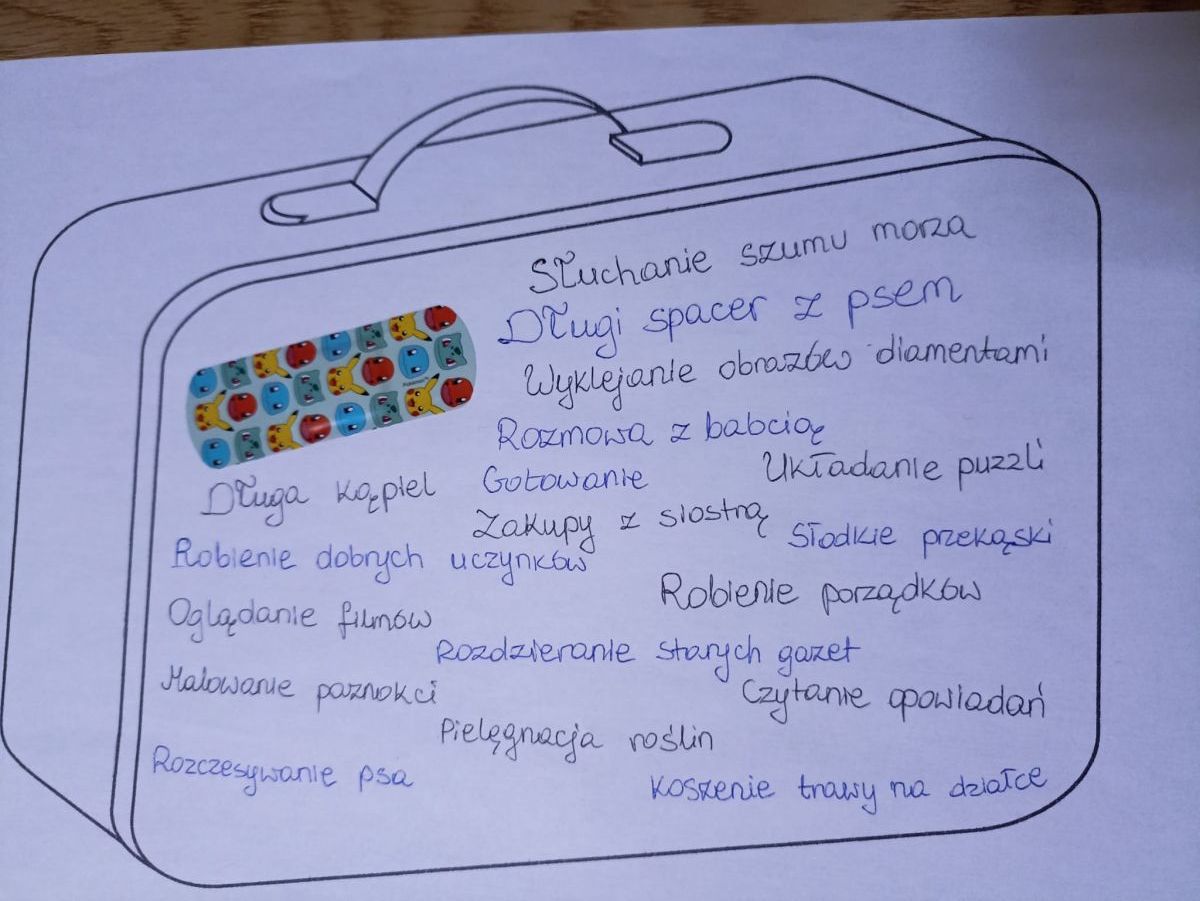 Słuchanie szumu morza
Długi spacer z psem
Wyklejanie obrazów diamentami
Rozmowa z babcią
Układanie puzzli
Długa kąpiel
Gotowanie
Zakupy z siostrą
Słodkie przekąski
Robienie dobrych uczynków
Robienie porządków
Oglądanie filmów
Rozdzieranie starych gazet
Malowanie paznokci
Czytanie opowiadań
Pielęgnacja roślin
Rozczesywanie psa
Koszenie trawy na działce